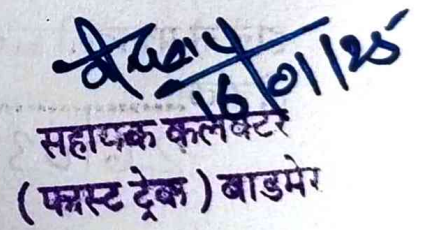 16/01/25
सहायक कलेक्टर
(फास्ट ट्रेक) बाडमेर